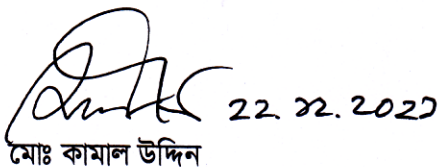 ২২.১২.২০২১
মোঃ কামাল উদ্দিন